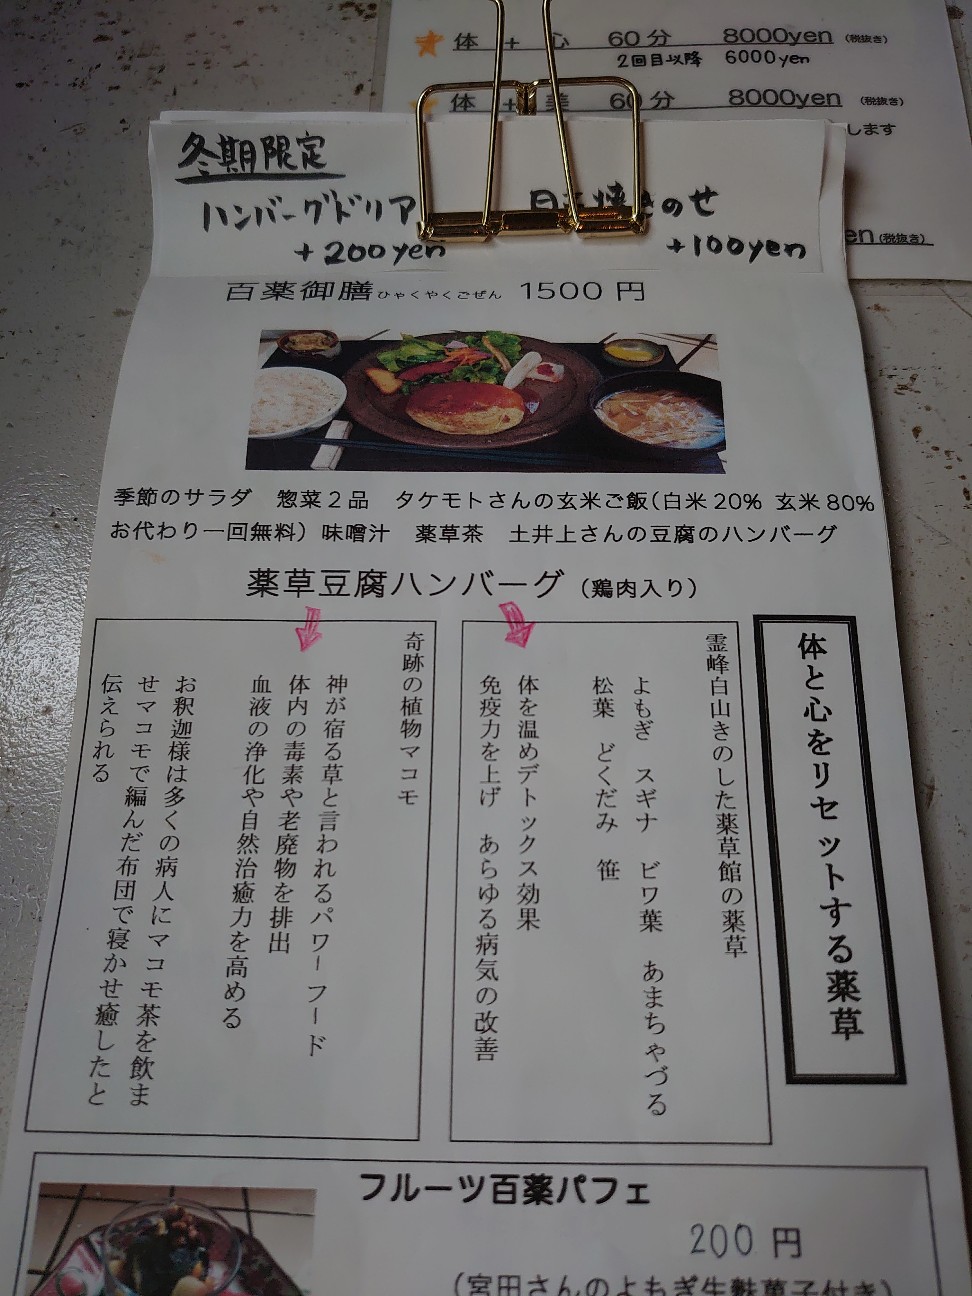 体 + 心 60分 8000yen (税抜き)
2回目以降 6000yen
体 + 美 60分 8000yen (税抜き)
します
en (税抜き)
冬期限定
ハンバーグドリア
+200yen
焼きのせ
+100yen
百薬御膳ひゃくやくごぜん 1500円
季節のサラダ 惣菜2品 タケモトさんの玄米ご飯(白米20% 玄米80%
お代わり一回無料) 味噌汁 薬草茶 土井上さんの豆腐のハンバーグ
薬草豆腐ハンバーグ (鶏肉入り)
体と心をリセットする薬草
霊峰白山きのした薬草館の薬草
よもぎ スギナ ビワ葉 あまちゃづる
松葉 どくだみ 笹
体を温めデトックス効果
免疫力を上げ あらゆる病気の改善
奇跡の植物マコモ
神が宿る草と言われるパワーフード
体内の毒素や老廃物を排出
血液の浄化や自然治癒力を高める
お釈迦様は多くの病人にマコモ茶を飲ま
せマコモで編んだ布団で寝かせ癒したと
伝えられる
フルーツ百薬パフェ
200円
(宮田さんのよもぎ生麩菓子付き)